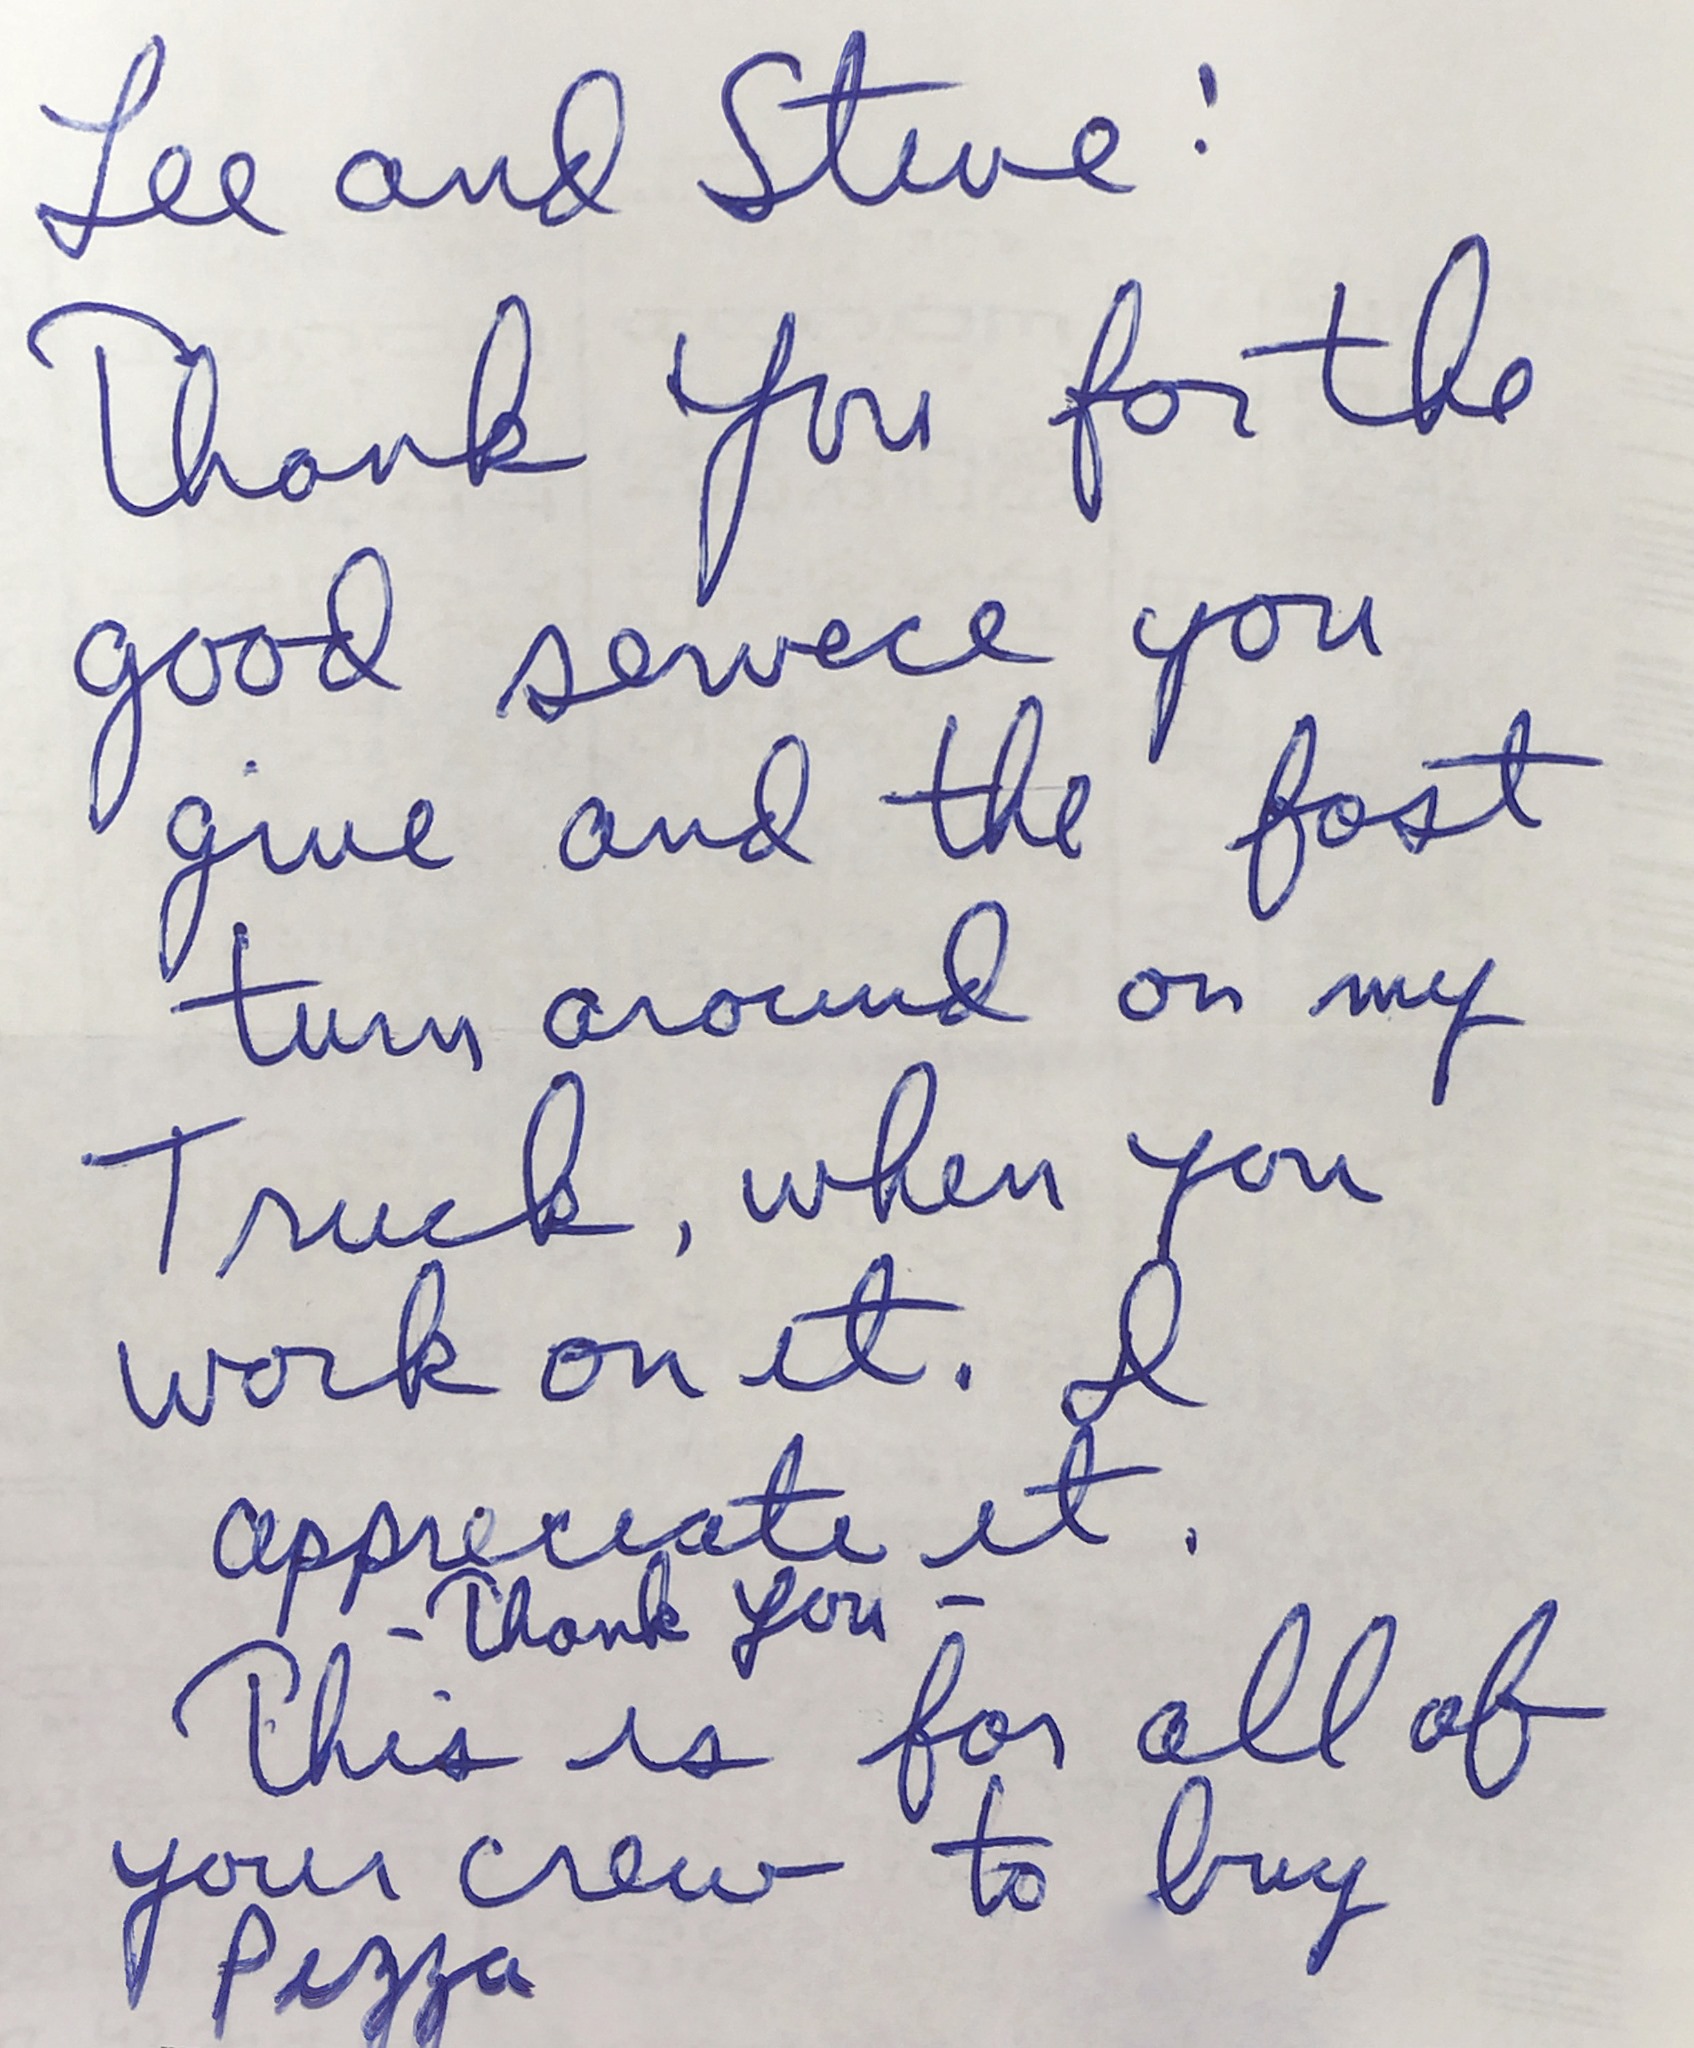 Lee and Steve!
Thank You for the
good service you
give and the fast
turn around on my
Truck, when you
work on it. I
appreciate it.
- Thank You -
This is for all of
your crew to buy
Pizza